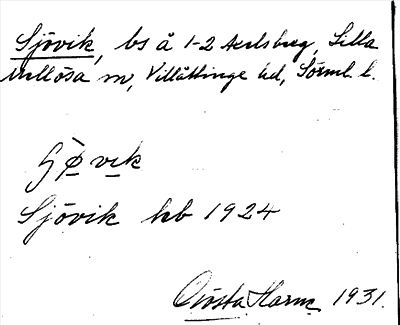 Sjövik, bs å 1-2 Axelsberg, Lilla
Mellösa sn, Villåttinge hd, Sörml. l.
Sjövik kb 1924
Gösta Harm 1931.